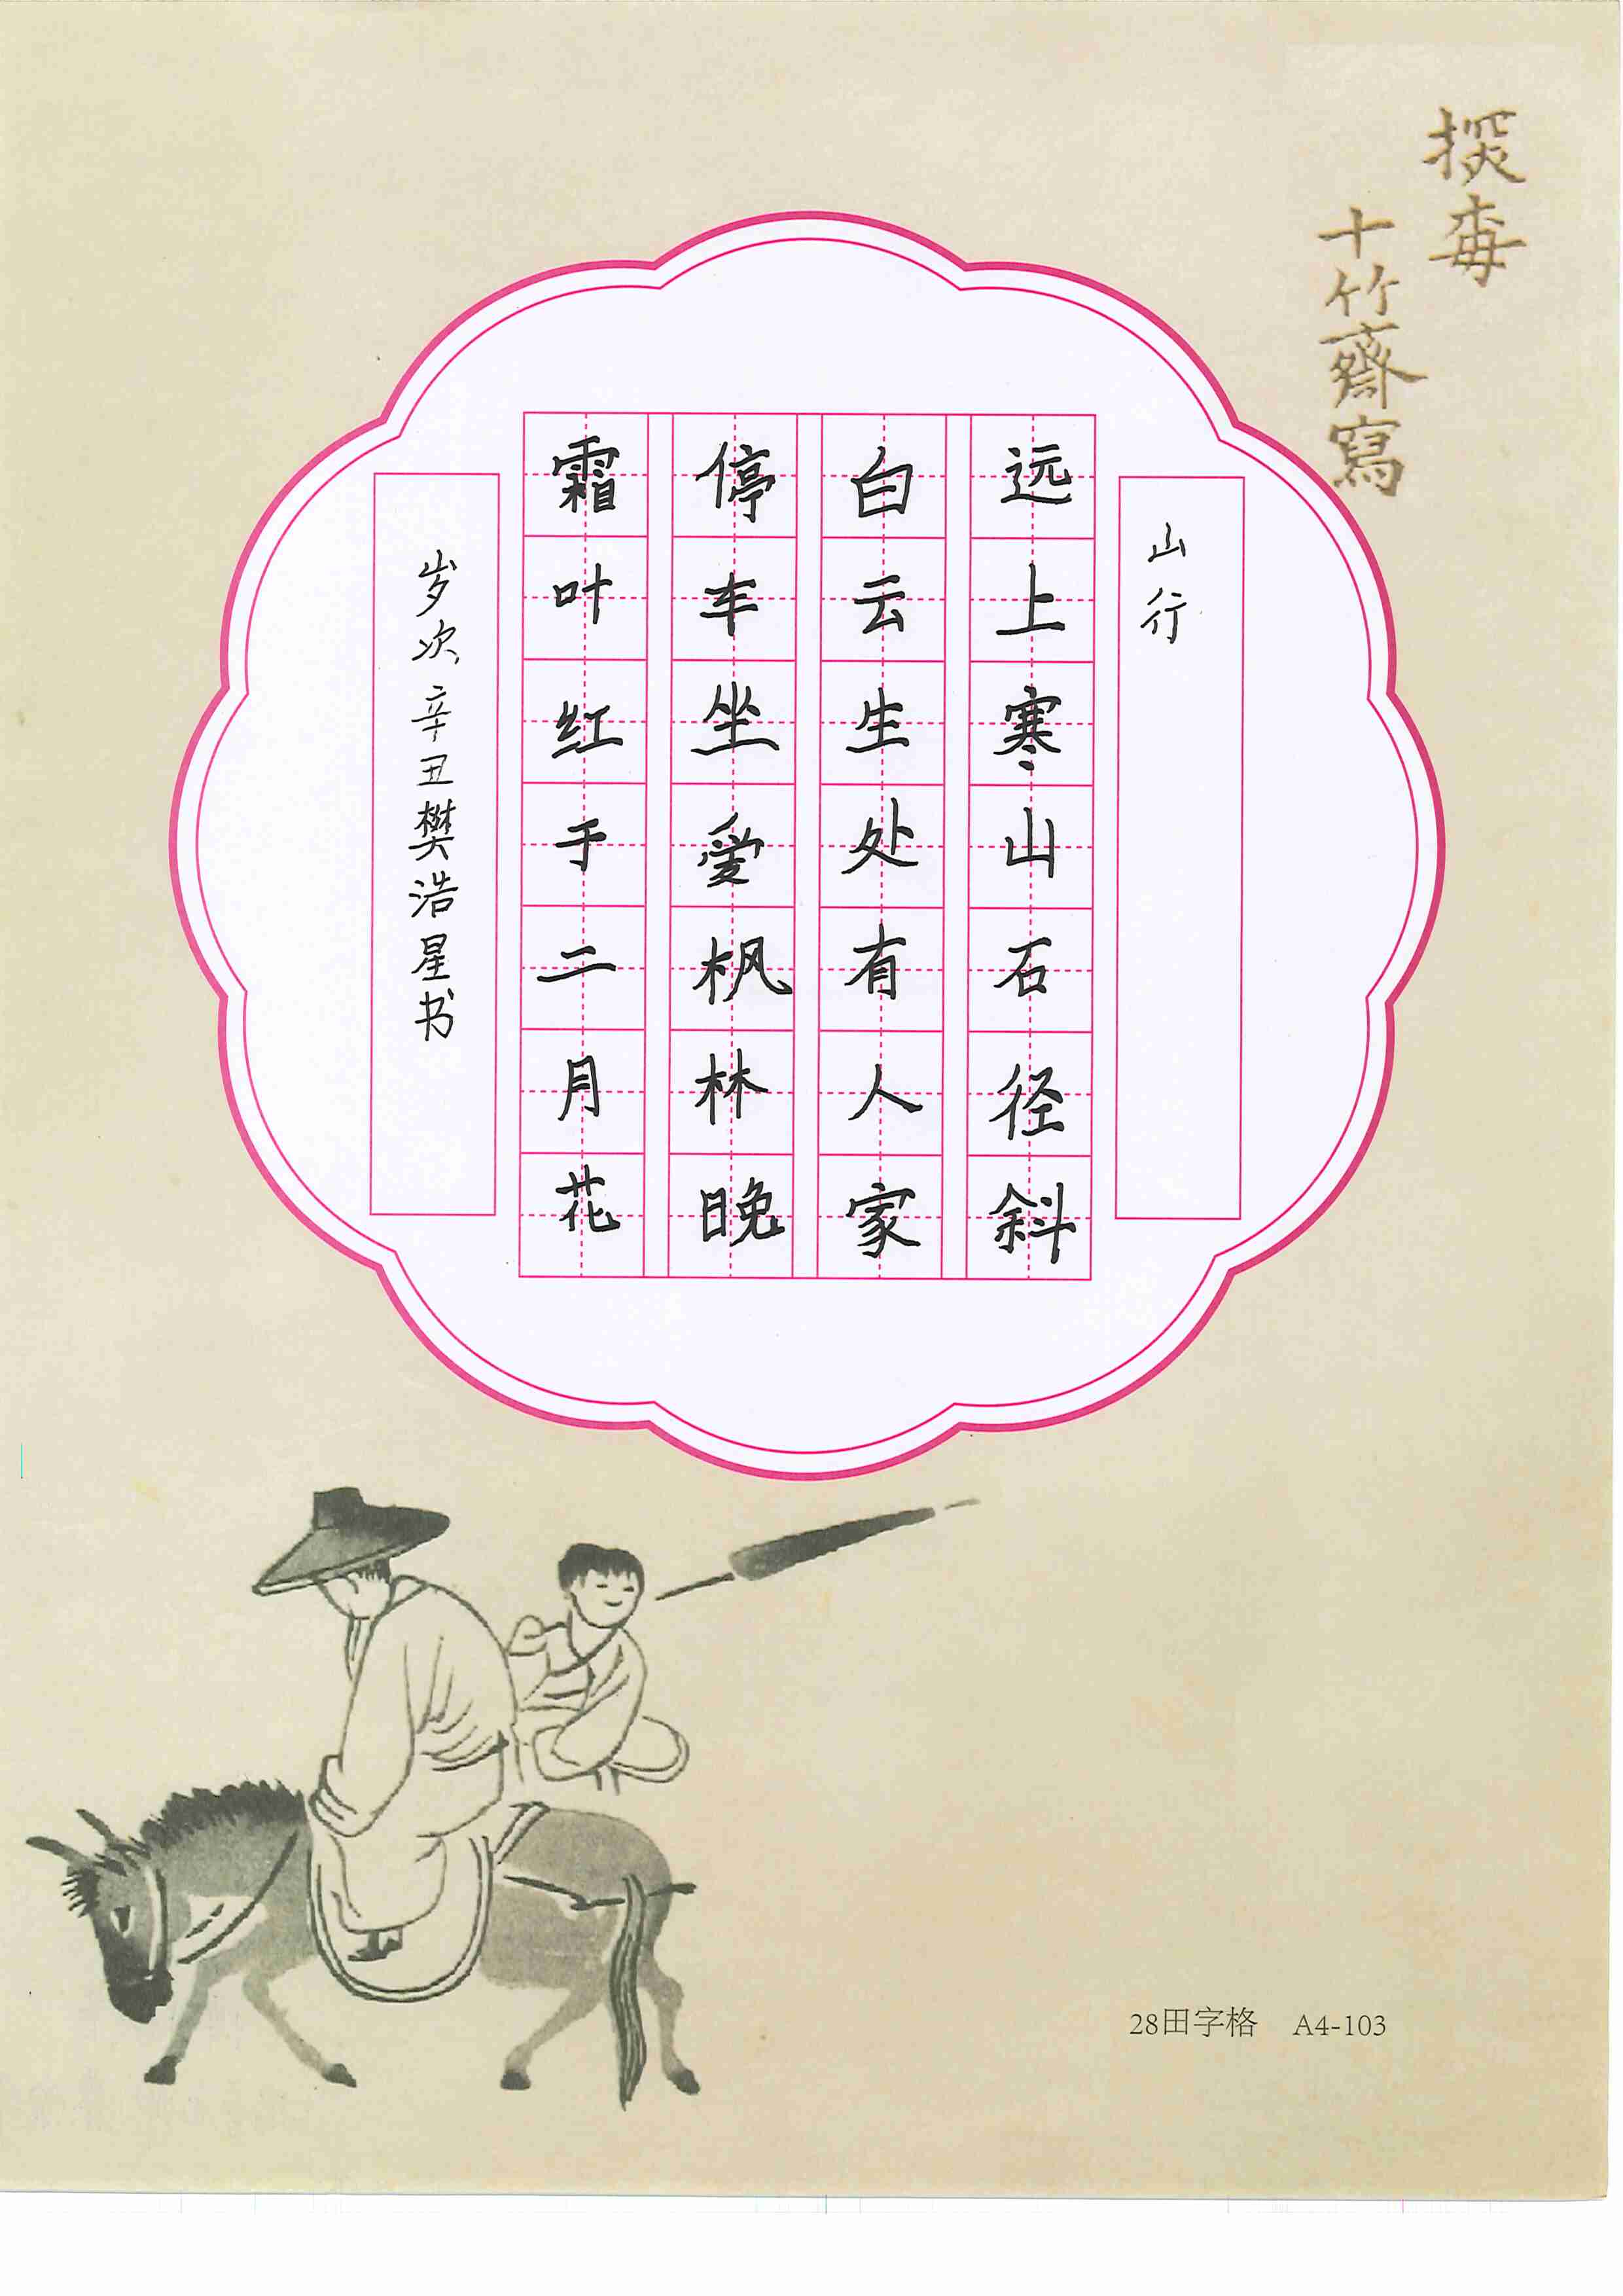 探毒
十竹齋寫
山行
远上寒山石径斜
白云生处有人家
停车坐爱枫林晚
霜叶红于二月花
岁次辛丑樊浩星书
28田字格 A4-103